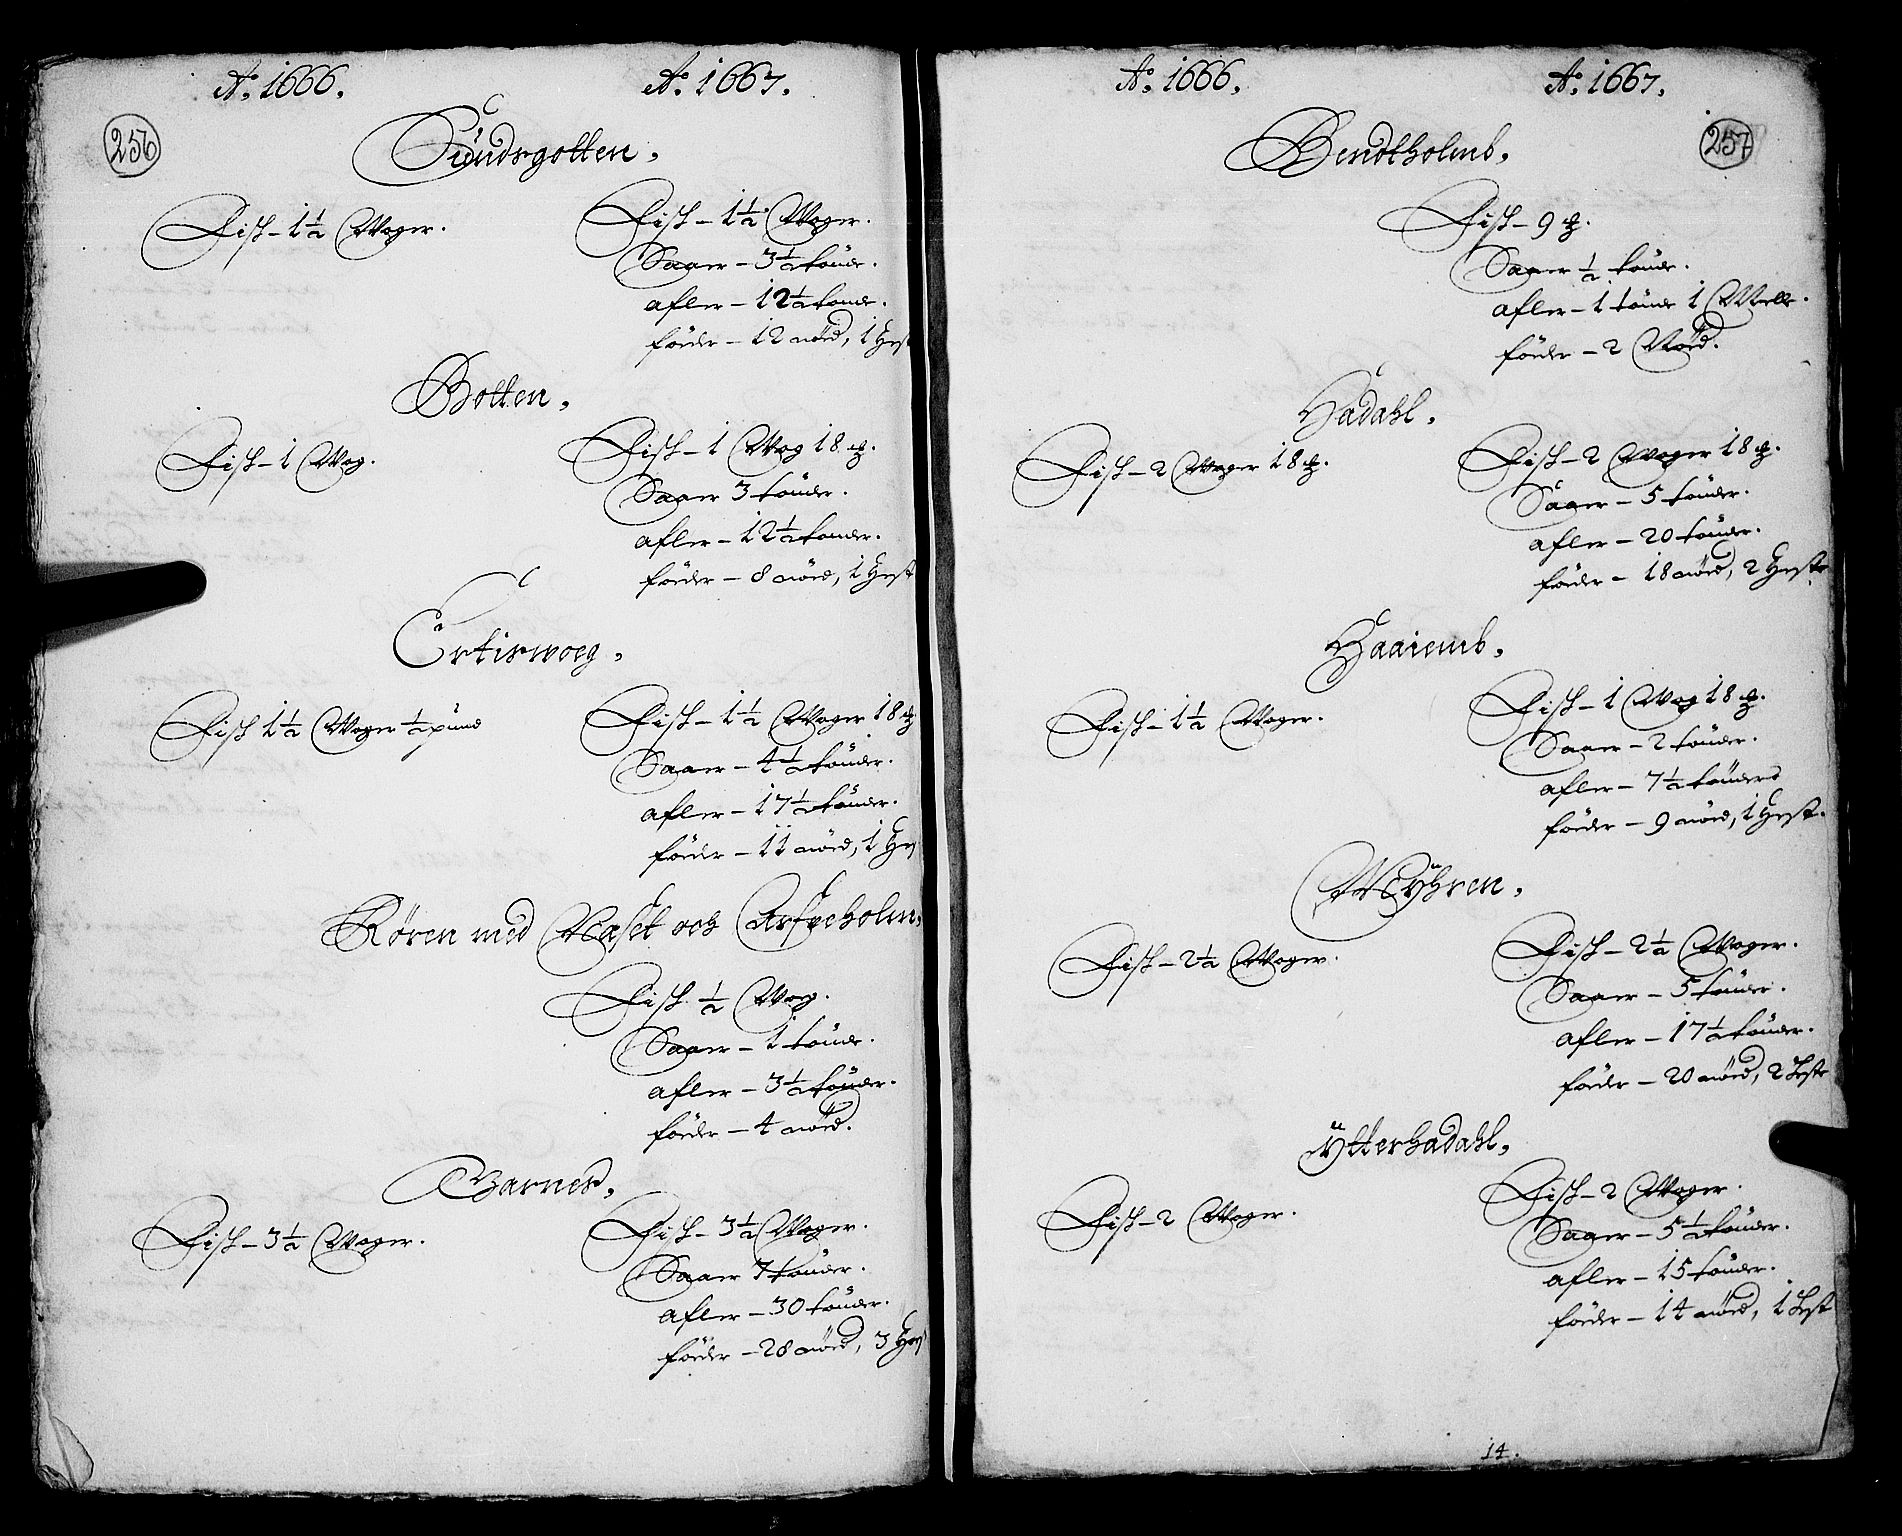 Aº. 1666. Aº. 1667.
256
Sündsgotten.
Fisk - 1½ Woger. Fisk - 1½ Woger.
Saaer - 3½ tönder.
afler - 12½ tönder.
föeder - 12 nöed, 1 Hest
Botten.
Fisk - 1 Wog. Fisk - 1 Wog 18 ℔.
Saaer 3 tönder.
afler - 12½ tonder.
föeder - 8 nöed, 1 Hest
Ertiswoeg.
Fisk 1½ Woger ½ pund Fisk - 1½ Woger 18 ℔
Saaer - 4½ tönder.
afler - 17½ tönder.
föeder - 11 nöed, 1 Hes
Røren med Næset och Arfveholm.
Fisk ½ Wog.
Saaer - 1 tönde.
afler - 3½ tönder.
föeder - 4 nöed.
Barnes.
Fisk - 3½ Woger. Fisk - 3½ Woger.
Saaer 7 tönder.
afler - 30 tönder.
föeder - 28 nöed, 3 Hes
Aº. 1666. Aº. 1667.
257
Bendtholmb.
Fisk - 9 ℔.
Saaer ½ tönde.
afler - 1 tönde 1 Welle.
föeder - 2 Nöed.
Hadahl.
Fisk - 2 Woger 18 ℔. Fisk - 2 Woger 18 ℔.
Saaer - 5 tönder.
afler - 20 tönder.
föeder - 18 nöed, 2 Heste
Haaiemb.
Fisk - 1½ Woger. Fisk - 1 Wog 18 ℔.
Saaer - 2 tönder.
afler - 7½ tönder
föeder - 9 nöed, 1 Hest.
Mÿhren.
Fisk - 2½ Woger. Fisk - 2½ Woger.
Saaer - 5 tönder.
afler - 17½ tönder.
föeder - 20 nöed, 2 Heste
Ÿtterhadahl.
Fisk - 2 Woger. Fisk - 2 Woger.
Saaer - 5½ tönder.
afler - 15 tönder.
föeder - 14 nöed, 1 Hest
14.